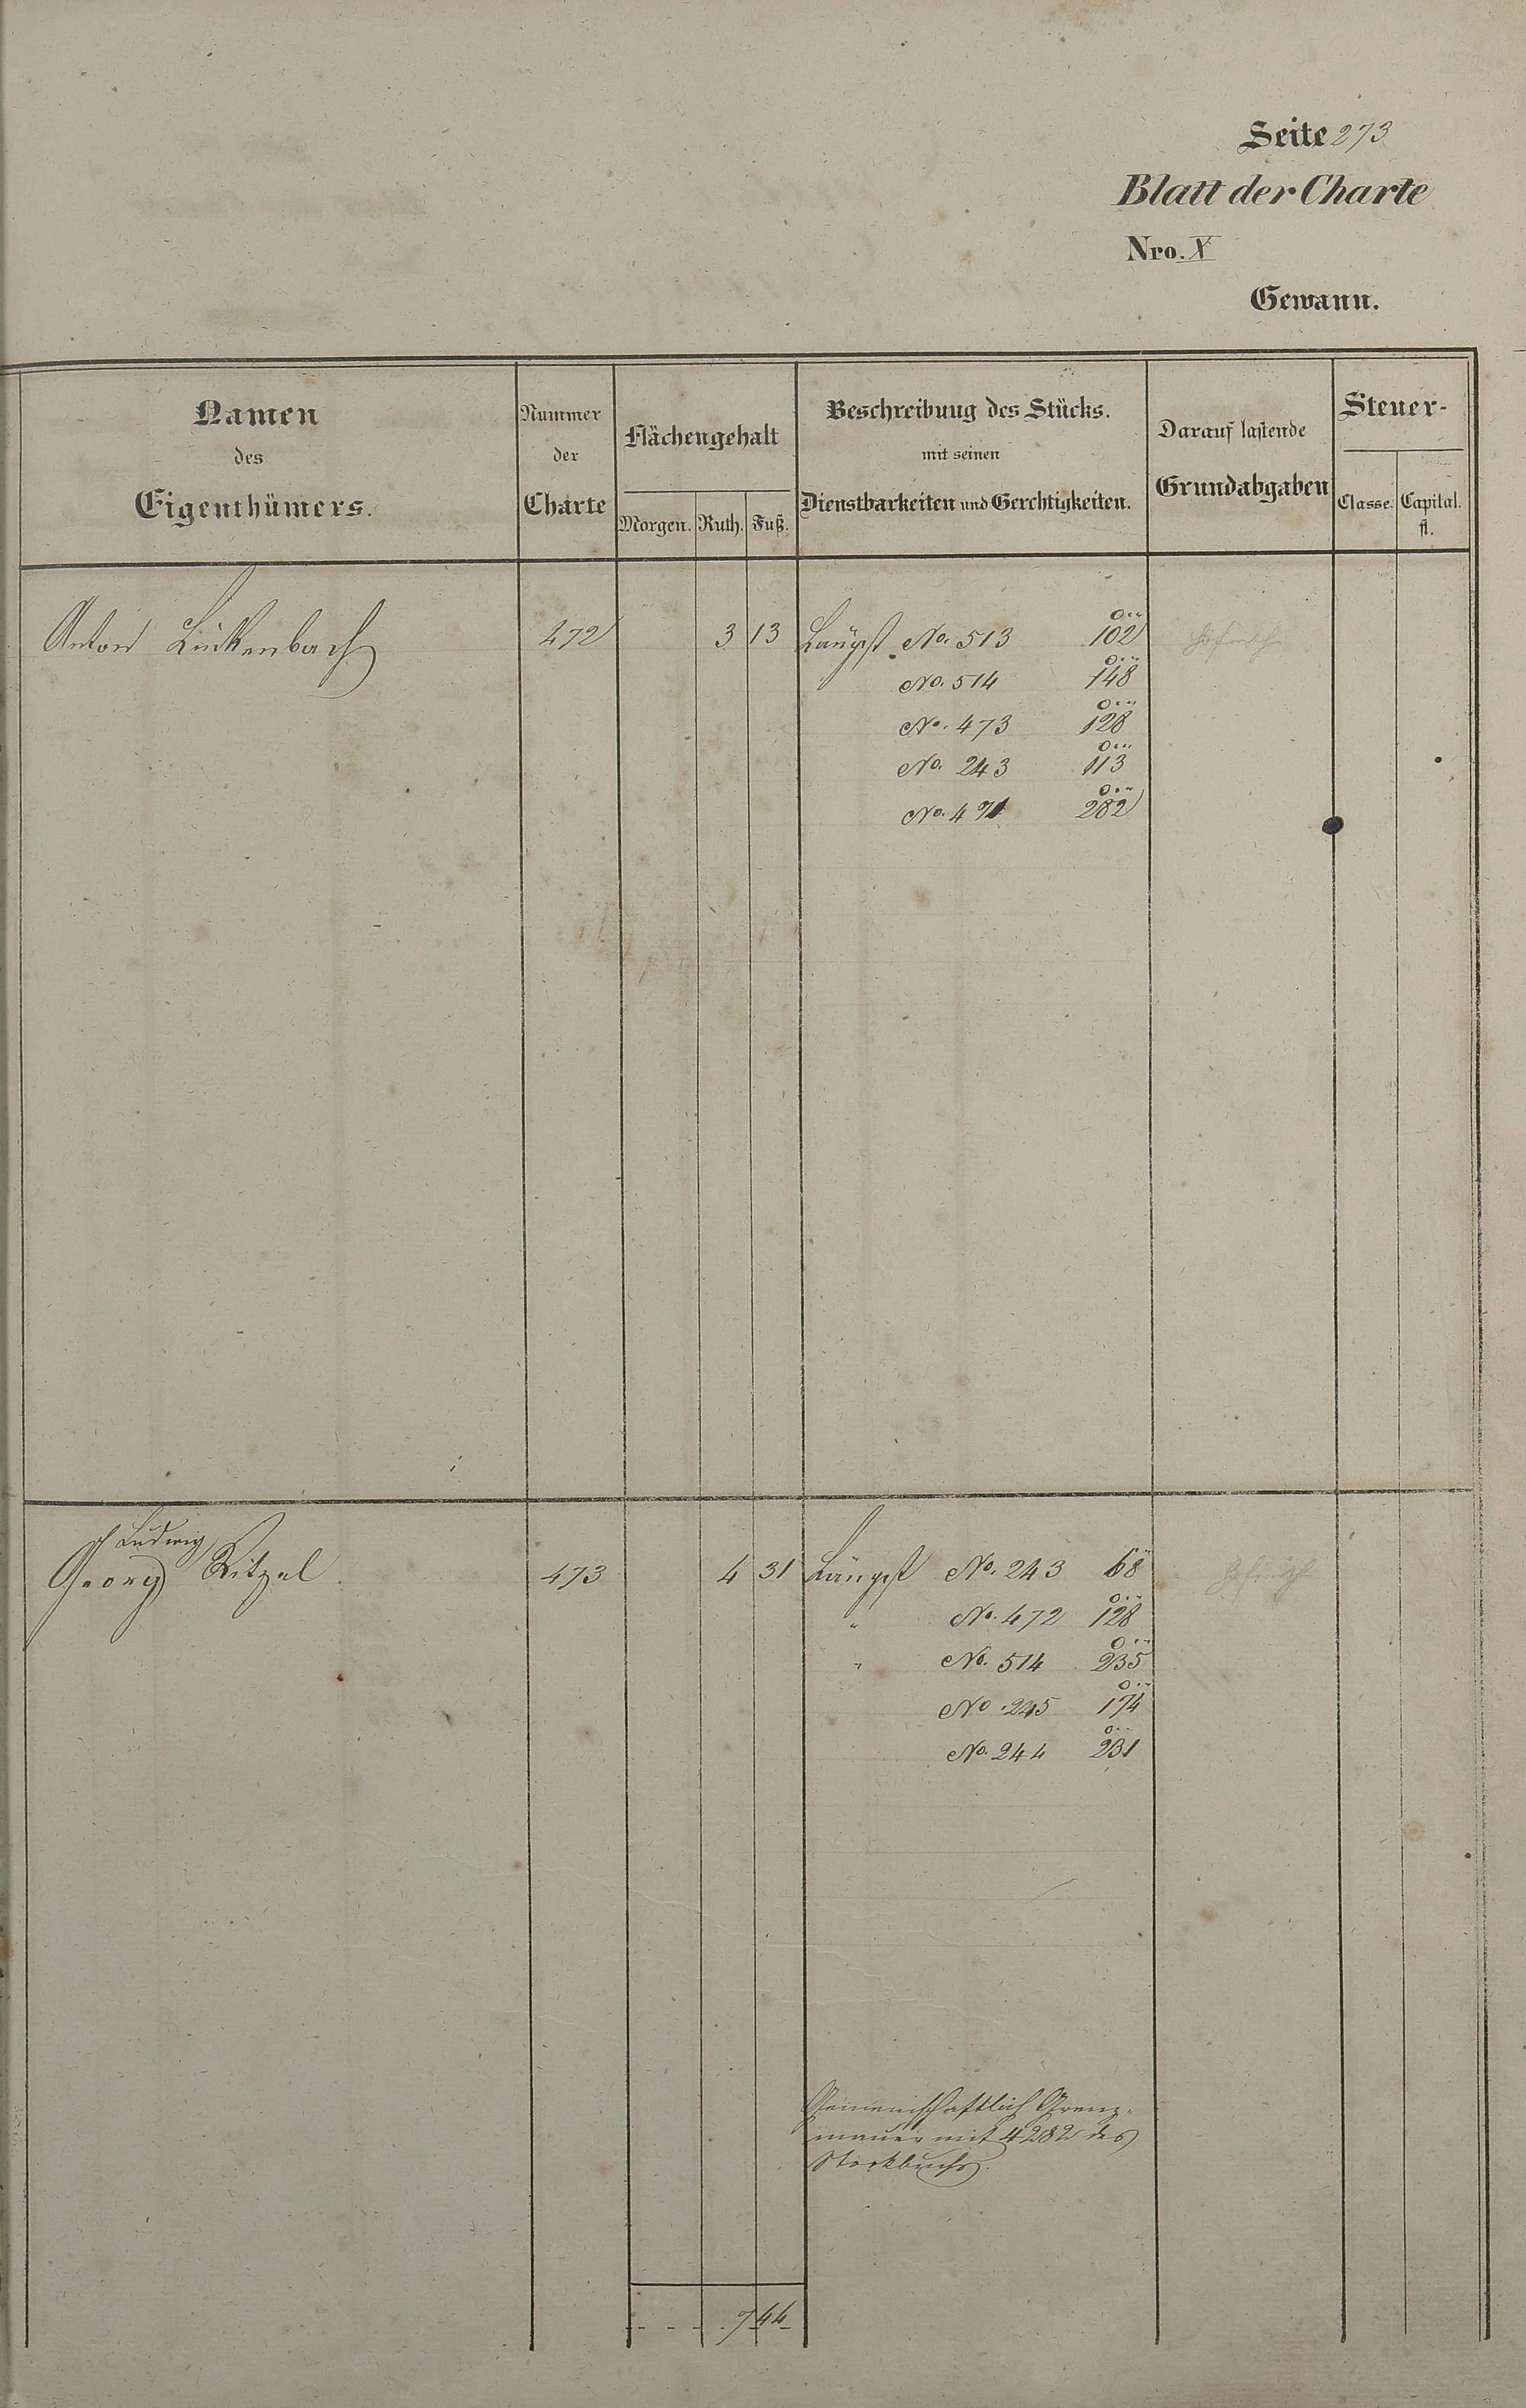 Seite 273
Blatt der Charte
Nro. X
Gewann.
Namen
des
Eigenthümers.
Nummer
der
Charte
Flächengehalt
Morgen. Ruth. Fuß.
Beschreibung des Stücks.
mit seinen
Dienstbarkeiten und Gerechtigkeiten.
Darauf lastende
Grundabgaben
Steuer-
Classe. Capital.
fl.
Anton Lückenbach 472 3 13 Längst No. 513 102
No. 514 148
No. 473 128
No. 243 113
No. 471 282
Ludwig
Georg Ritzel. 473 4 31 Längst No. 243 68
" No. 472 128
" No. 514 235
No. 245 174
No. 244 231
Gemeinschaftlich Grenz-
mauer mit 4282 des
Stockbuchs.
7 44